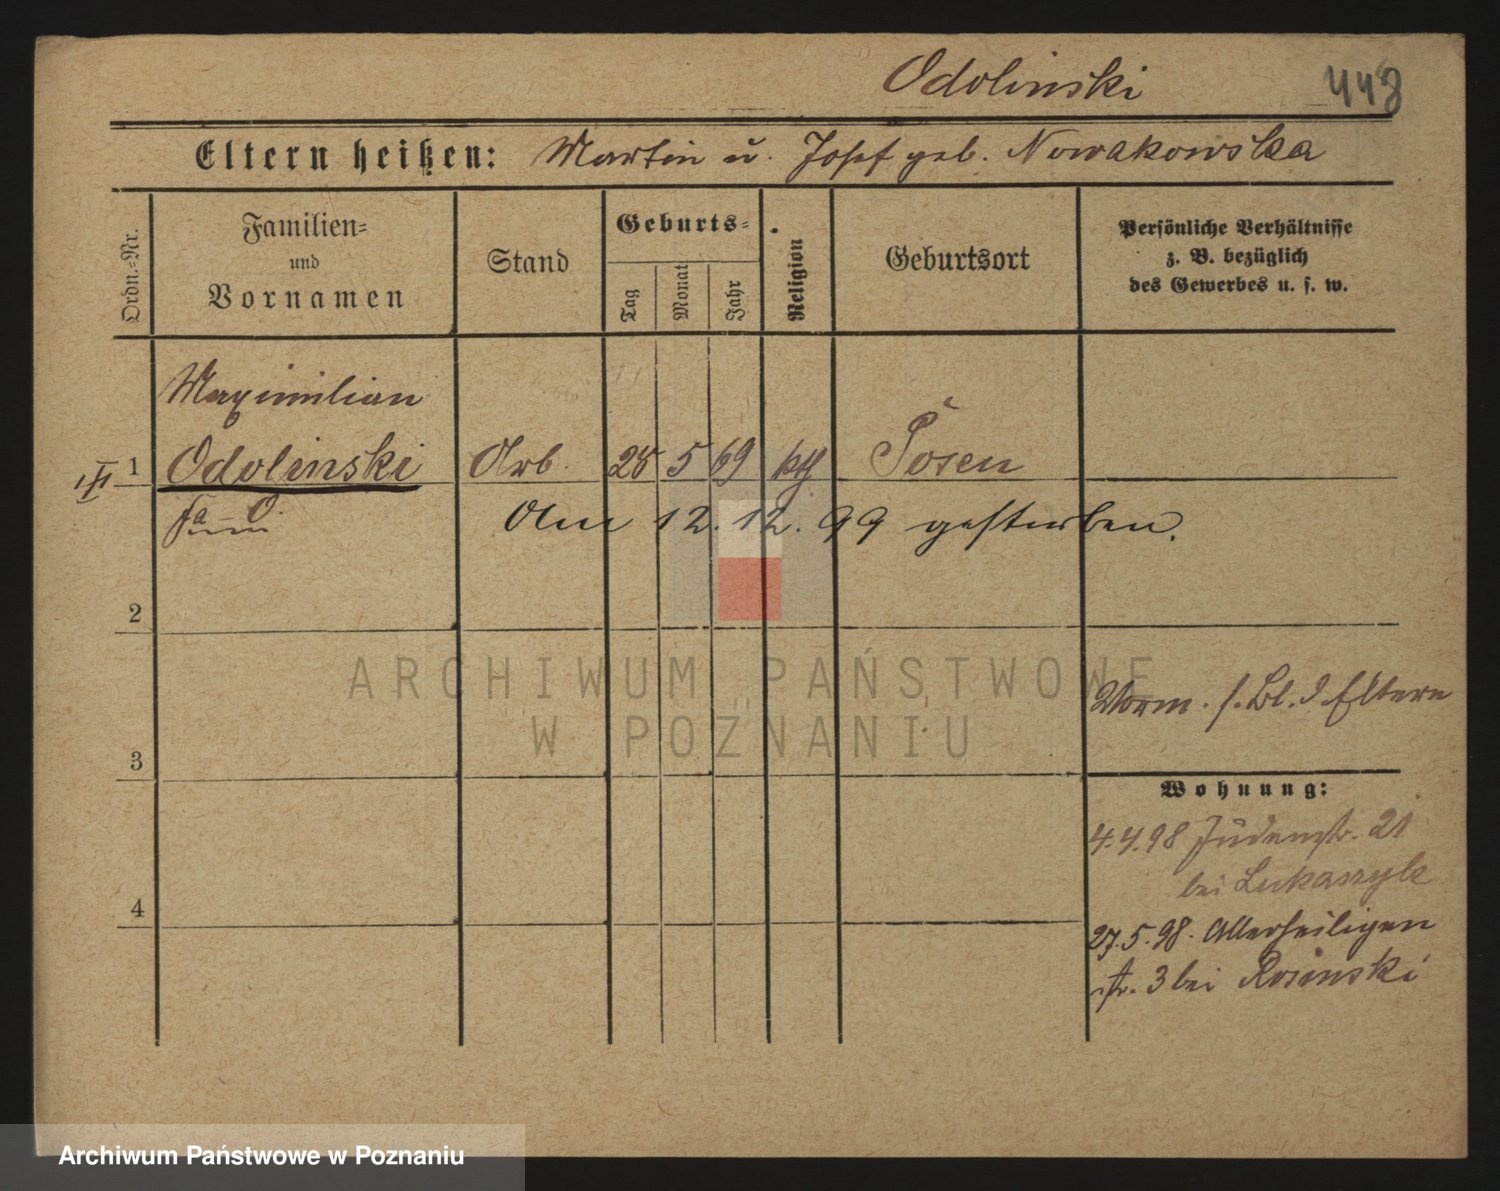 Odolinski 448
Eltern heißen: Martin u. Josef geb. Nowakowska
Ordn.-Nr.
Familien-
und
Vornamen
Stand
Geburts-
Tag
Monat
Jahr
Religion
Geburtsort
Persönliche Verhältnisse
z. B. bezüglich
des Gewerbes u. s. w.
Maximilian
1 Odolinski Arb. 28 5 69 kth Posen
Am 12.12.99 gestorben.
2
Vorm. s. Bl. d Eltern
3
Wohnung:
4.4.98 Judenstr. 21
bei Lukaszyk
4
27.5.98. Allerheiligen
str. 3 bei Rosinski
ARCHIWUM PAŃSTWOWE
W POZNANIU
Archiwum Państwowe w Poznaniu